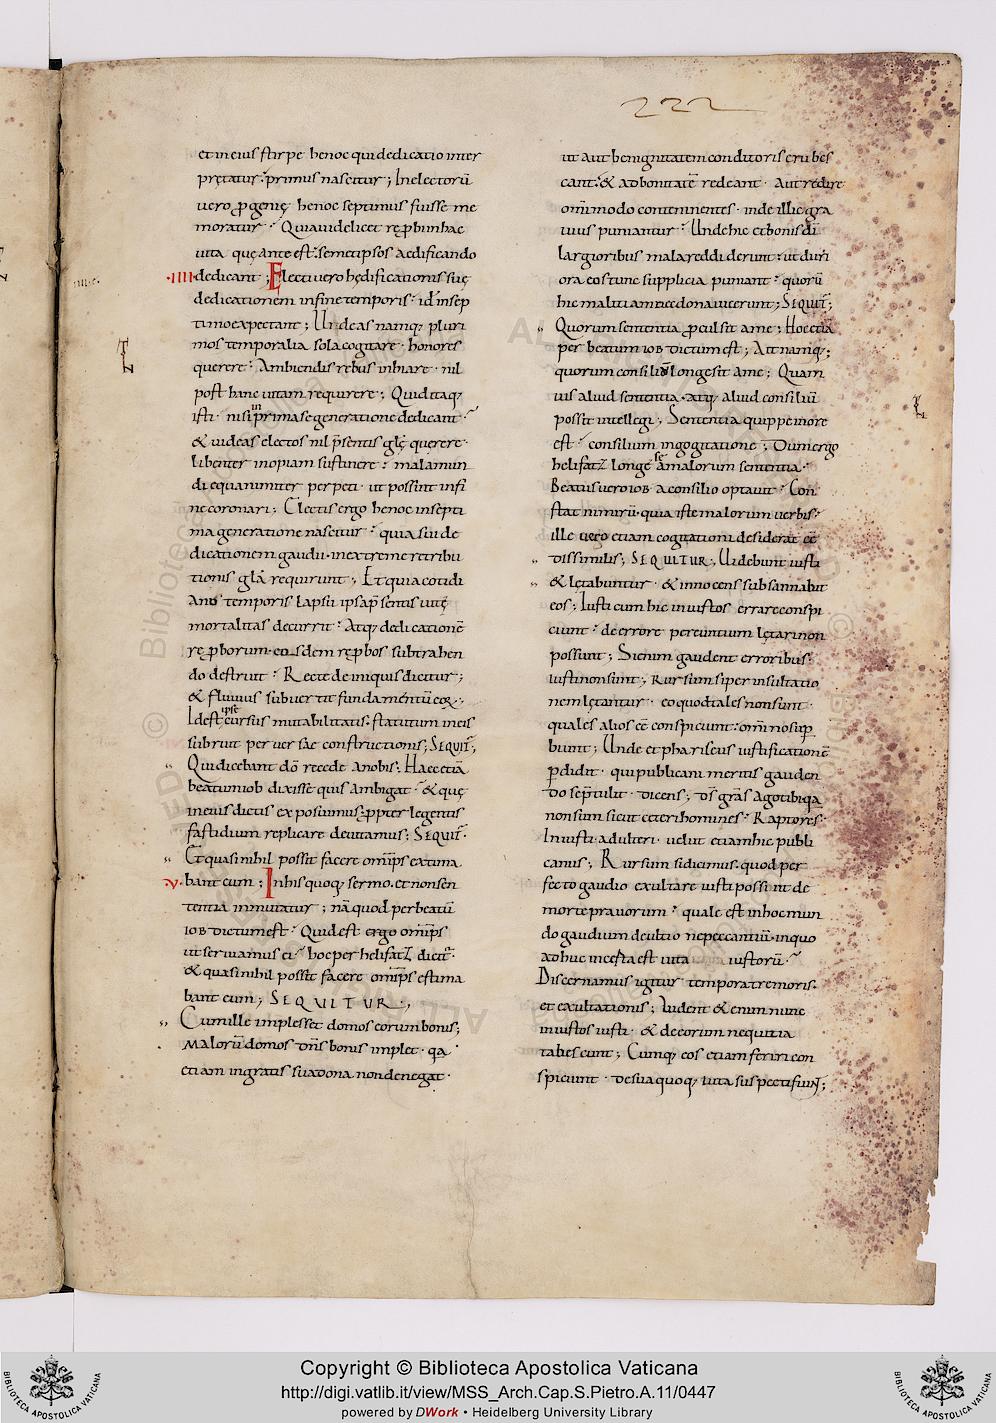 222
et in eius stirpe henoc qui dedicatio inter
prętatur; primus nascitur; In electorū
vero ꝓgenię henoc septimus fuisse me
moratur; Quia videlicet reꝓbi in hac
vita quę ante est; semetipsos aedificando
·IIII· dedicant; Electi vero hędificationis suę
dedicationem in fine temporis; id ÷ in sep
timo expectant; Uideas namq; pluri
mos temporalia sola cogitare· honores
querere; Ambiendis rebus inhiare· nil
post hanc vitam requirere; Quid itaq;
isti· nisi in prima se generatione dedicant;
& videas electos nil p̄sentis glę querere·
libenter inopiam sustinere; mala mun
di equanimiter perpeti· ut possint infi
ne coronari; Electis ergo henoc in septi
ma generatione nascitur; quia sui de
dicationem gaudii· in extreme retribu
tionis glā requirunt; Et quia cotidi
ano temporis lapsu ipsa p̄sentis vitę
mortalitas decurrit; Atq; dedicationē
reꝓborum· eosdem reꝓbos subtrahen
do destruit; Recte de iniquis dicitur;
& fluvius subvertit fundamentū eoꝝ;
Id est ipse cursus mutabilitatis· statutum in eis
subruit perversae constructionis; SEQUIT̄;
Qui dicebant dō recede a nobis; Haec etiā
beatum iob dixisse quis ambigat· & quę
in eius dictis exposuimus; ꝓpter legentis
fastidium replicare devitamus; SEQUIT̄·
Et quasi nihil possit facere omīps extima
·V· bant eum; In his quoq; sermo· et non sen
tentia inmutatur; nā quod per beatū
iob dictum est; Quid est ergo omīps
ut serviamus ei; hoc per helifatz dicit̄·
& quasi nihil possit facere omīps estima
bant eum; SEQUITUR;
Cum ille implesset domos eorum bonis;
Malorū domos dn̄s bonis implet· qa
etiam ingratis sua dona non denegat·
ut aut benignitatem conditoris erubes
cant; & ad bonitatē redeant· Aut redire
omnimodo contemnentes· inde illic gra
vius puniantur; Unde hic et bonis dī
largioribus mala reddiderunt; ut duri
ora eos tunc supplicia puniant; quorū
hic malitiam nec dona vicerunt; SEQUIT̄;
Quorum sententia ꝓcul sit a me; Hoc etiā
per beatum iob dictum est; Ait namq;
quorum consiliū longe sit a me; Quam
vis aliud sententia· atq; aliud consiliū
possit intellegi; Sententia quippe in ore
est; consilium in cogitatione; Dum ergo
helifatz longe se a malorum sententia·
Beatus vero iob a consilio optavit; Con
stat nimirū· quia iste malorum verbis;
ille vero etiam cogitationi desiderat eē
dissimilis; SEQUITUR; Uidebunt iusti
& lętabuntur· & innocens subsannabit
eos; Iusti cum hic iniustos errare conspi
ciunt; de errore pereuntium lętari non
possunt; Si enim gaudent erroribus;
iusti non sunt; Rursum si per insultatio
nem lętantur· eo quod tales non sunt·
quales alios eē conspiciunt; omnino suꝑ
biunt; Unde et phariseus iustificationē
ꝑdidit· qui publicani meritis gauden
do se p̄tulit· dicens; dō gr̄as ago tibi qa
non sum sicut ceteri homines; Raptores·
Iniusti· adulteri· velut etiam hic publi
canus; Rursum si dicimus· quod per
fecto gaudio exultare iusti possint de
morte pravorum; quale est in hoc mun
do gaudium de ultione peccantiū· in quo
adhuc incerta est vita iustorū·
Discernamus igitur tempora tremoris·
et exultationis; Vident & enim nunc
iniustos iusti· & de eorum nequitia
tabescunt; Cumq; eos etiam feriri con
spiciunt· de sua quoq; vita suspecti fiunt;
Copyright © Biblioteca Apostolica Vaticana
http://digi.vatlib.it/view/MSS_Arch.Cap.S.Pietro.A.11/0447
powered by DWork • Heidelberg University Library
BIBLIOTECA APOSTOLICA VATICANA
BIBLIOTECA APOSTOLICA VATICANA